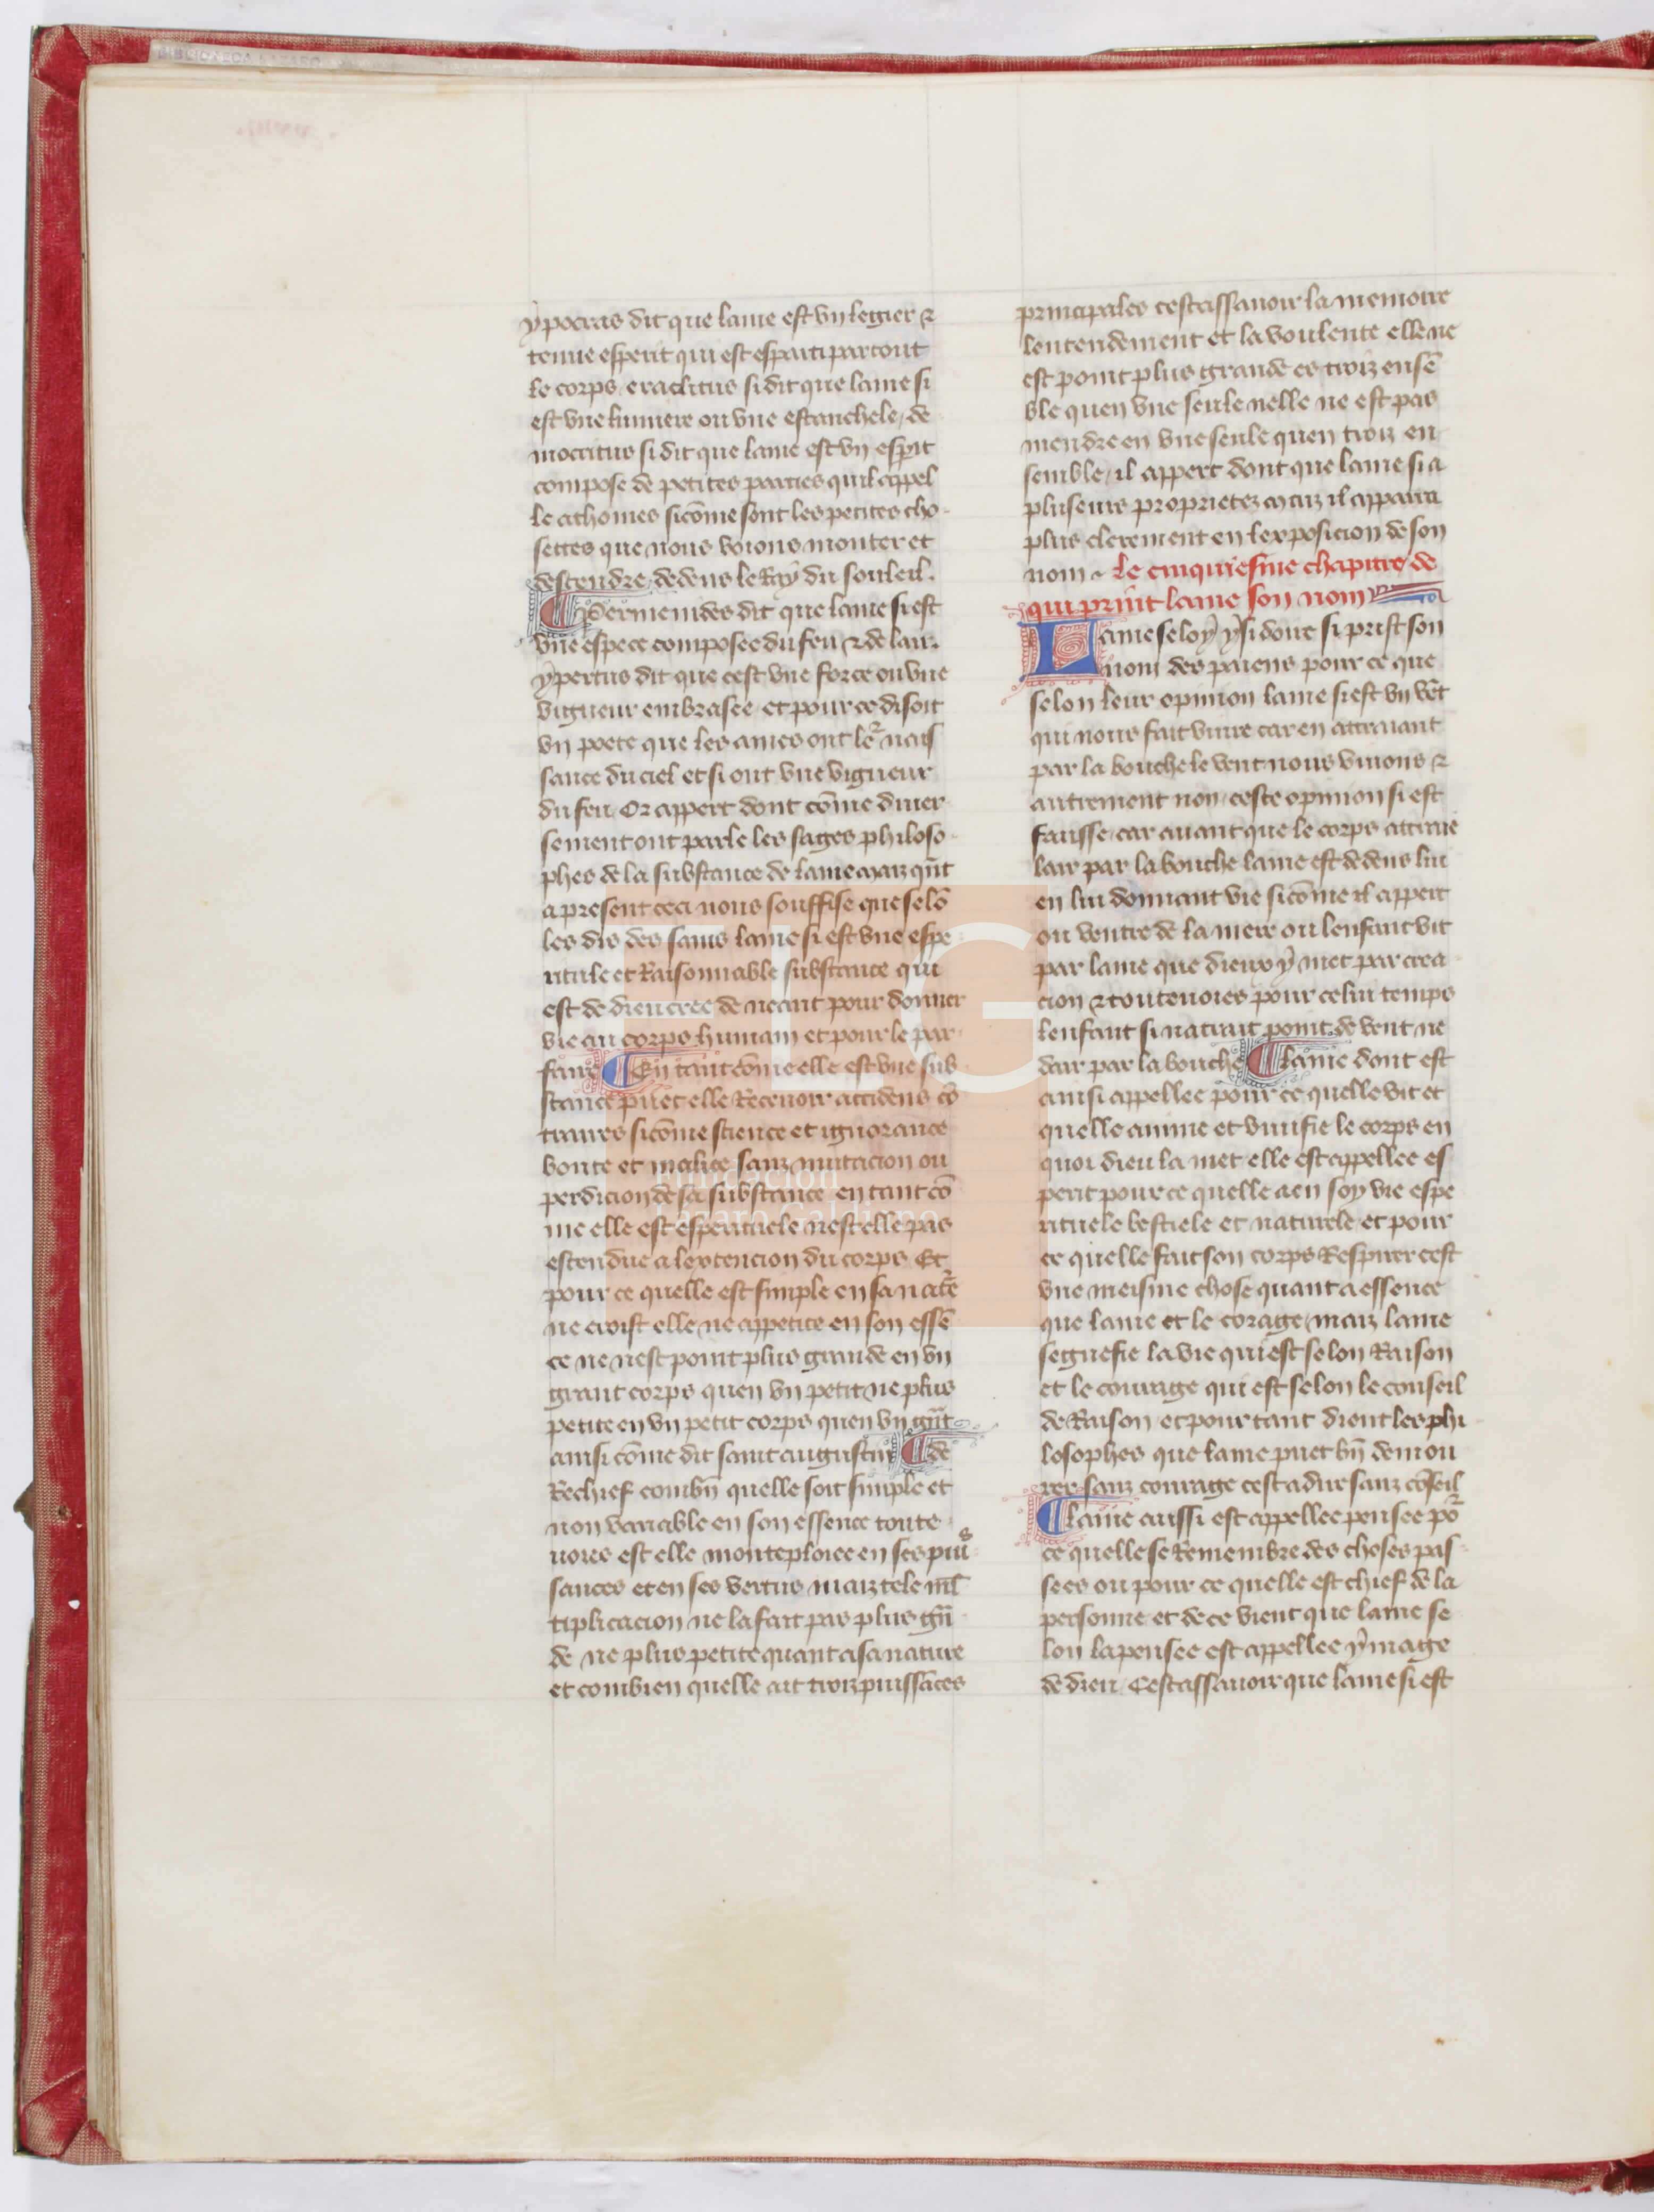 ypocras dit que lame est vn legier ⁊
tenue esperit qui est esparti par tout
le corps eraclitus si dit que lame si
est vne lumiere ou vne estanchele de
mocritus si dit que lame est vn esp̱it
compose de petites parties quil appel
le athomes sicōme sont les petites cho
settes que nous voions monter et
descendre dedens le Ray du souleil.
Permenides dit que lame si est
vne espece composee du feu ⁊ de lair.
ypertus dit que cest vne force ou vne
vigueur embrasee et pour ce disoit
vn poete que les ames ont le᷑ nais
sance du ciel et si ont vne vigueur
du feu Or appert dont cōme diuer
sement ont parle les sages philoso
phes de la substance de lame maiz qūt
a present ceci nous souffise que selō
les dis des sains lame si est vne espe
rituele et Raisonnable substance qui
est de dieu cree de neant pour donner
vie au corps humain et pour le par
faire En tant cōme elle est vne sub
stance puet elle Receuoir accidens cō
traires sicōme science et ignorance
bonte et malice sanz mutacion ou
perdicion de sa substance en tant cō
me elle est esperituele nest elle pas
estendue a lextencion du corps Et
pour ce quelle est simple en sa nat᷑e
ne croist elle ne appetice en son essē
ce ne nest point plus grande en vn
grant corps quen vn petit ne plus
petite en vn petit corps quen vn gr̄nt
ainsi cōme dit saint augustin de
Rechief combn̄ quelle soit simple et
non variable en son essence toute
uoies est elle monteploiee en ses puis
sances et en ses vertus maiz tele ml̄
tiplicacion ne la fait pas plus grā
de ne plus petite quant a sa nature
et combien quelle ait troiz puissāces
principales cestassauoir la memoire
lentendement et la voulente elle ne
est point plus grande es troiz ensē
ble quen vne seule nelle ne est pas
mendre en vne seule quen troiz en
semble il appert dont que lame si a
pluseurs proprietez maiz il apparra
plus clerement en lexposicion de son
nom Le cinquiesme chapitre de
qui prīnt lame son nom
Lame selon ysidore si prist son
nom des paiens pour ce que
selon leur opinion lame si est vn vēt
qui nous fait viure car en attraiant
par la bouche le vent nous viuons ⁊
autrement non ceste opinion si est
fausse car auant que le corps attraie
lair par la bouche lame est dedens lui
en lui donnant vie sicōme il appert
ou ventre de la mere ou lenfant vit
par lame que dieux y met par crea
cion ⁊ touteuoies pour celui temps
lenfant si natrait point de vent ne
dair par la bouche lame dont est
ainsi appellee pour ce quelle vit et
quelle anime et viuifie le corps en
quoi dieu la met elle est appellee es
perit pour ce quelle a en soy vie espe
rituele bestiele et naturele et pour
ce quelle fait son corps Respirer cest
vne meisme chose quant a essence
que lame et le corage maiz lame
seguefie la vie qui est selon Raison
et le courage qui est selon le conseil
de Raison et pour tant dient les phi
losophes que lame puet bn̄ demou
rer sanz courage cest a dire sanz cōseil
lame aussi est appellee pensee po᷑
ce quelle se Remembre des choses pas
sees ou pour ce quelle est chief de la
personne et de ce vient que lame se
lon la pensee est appellee ymage
de dieu Cestassauoir que lame si est
LG
Fundación
Lázaro Galdiano